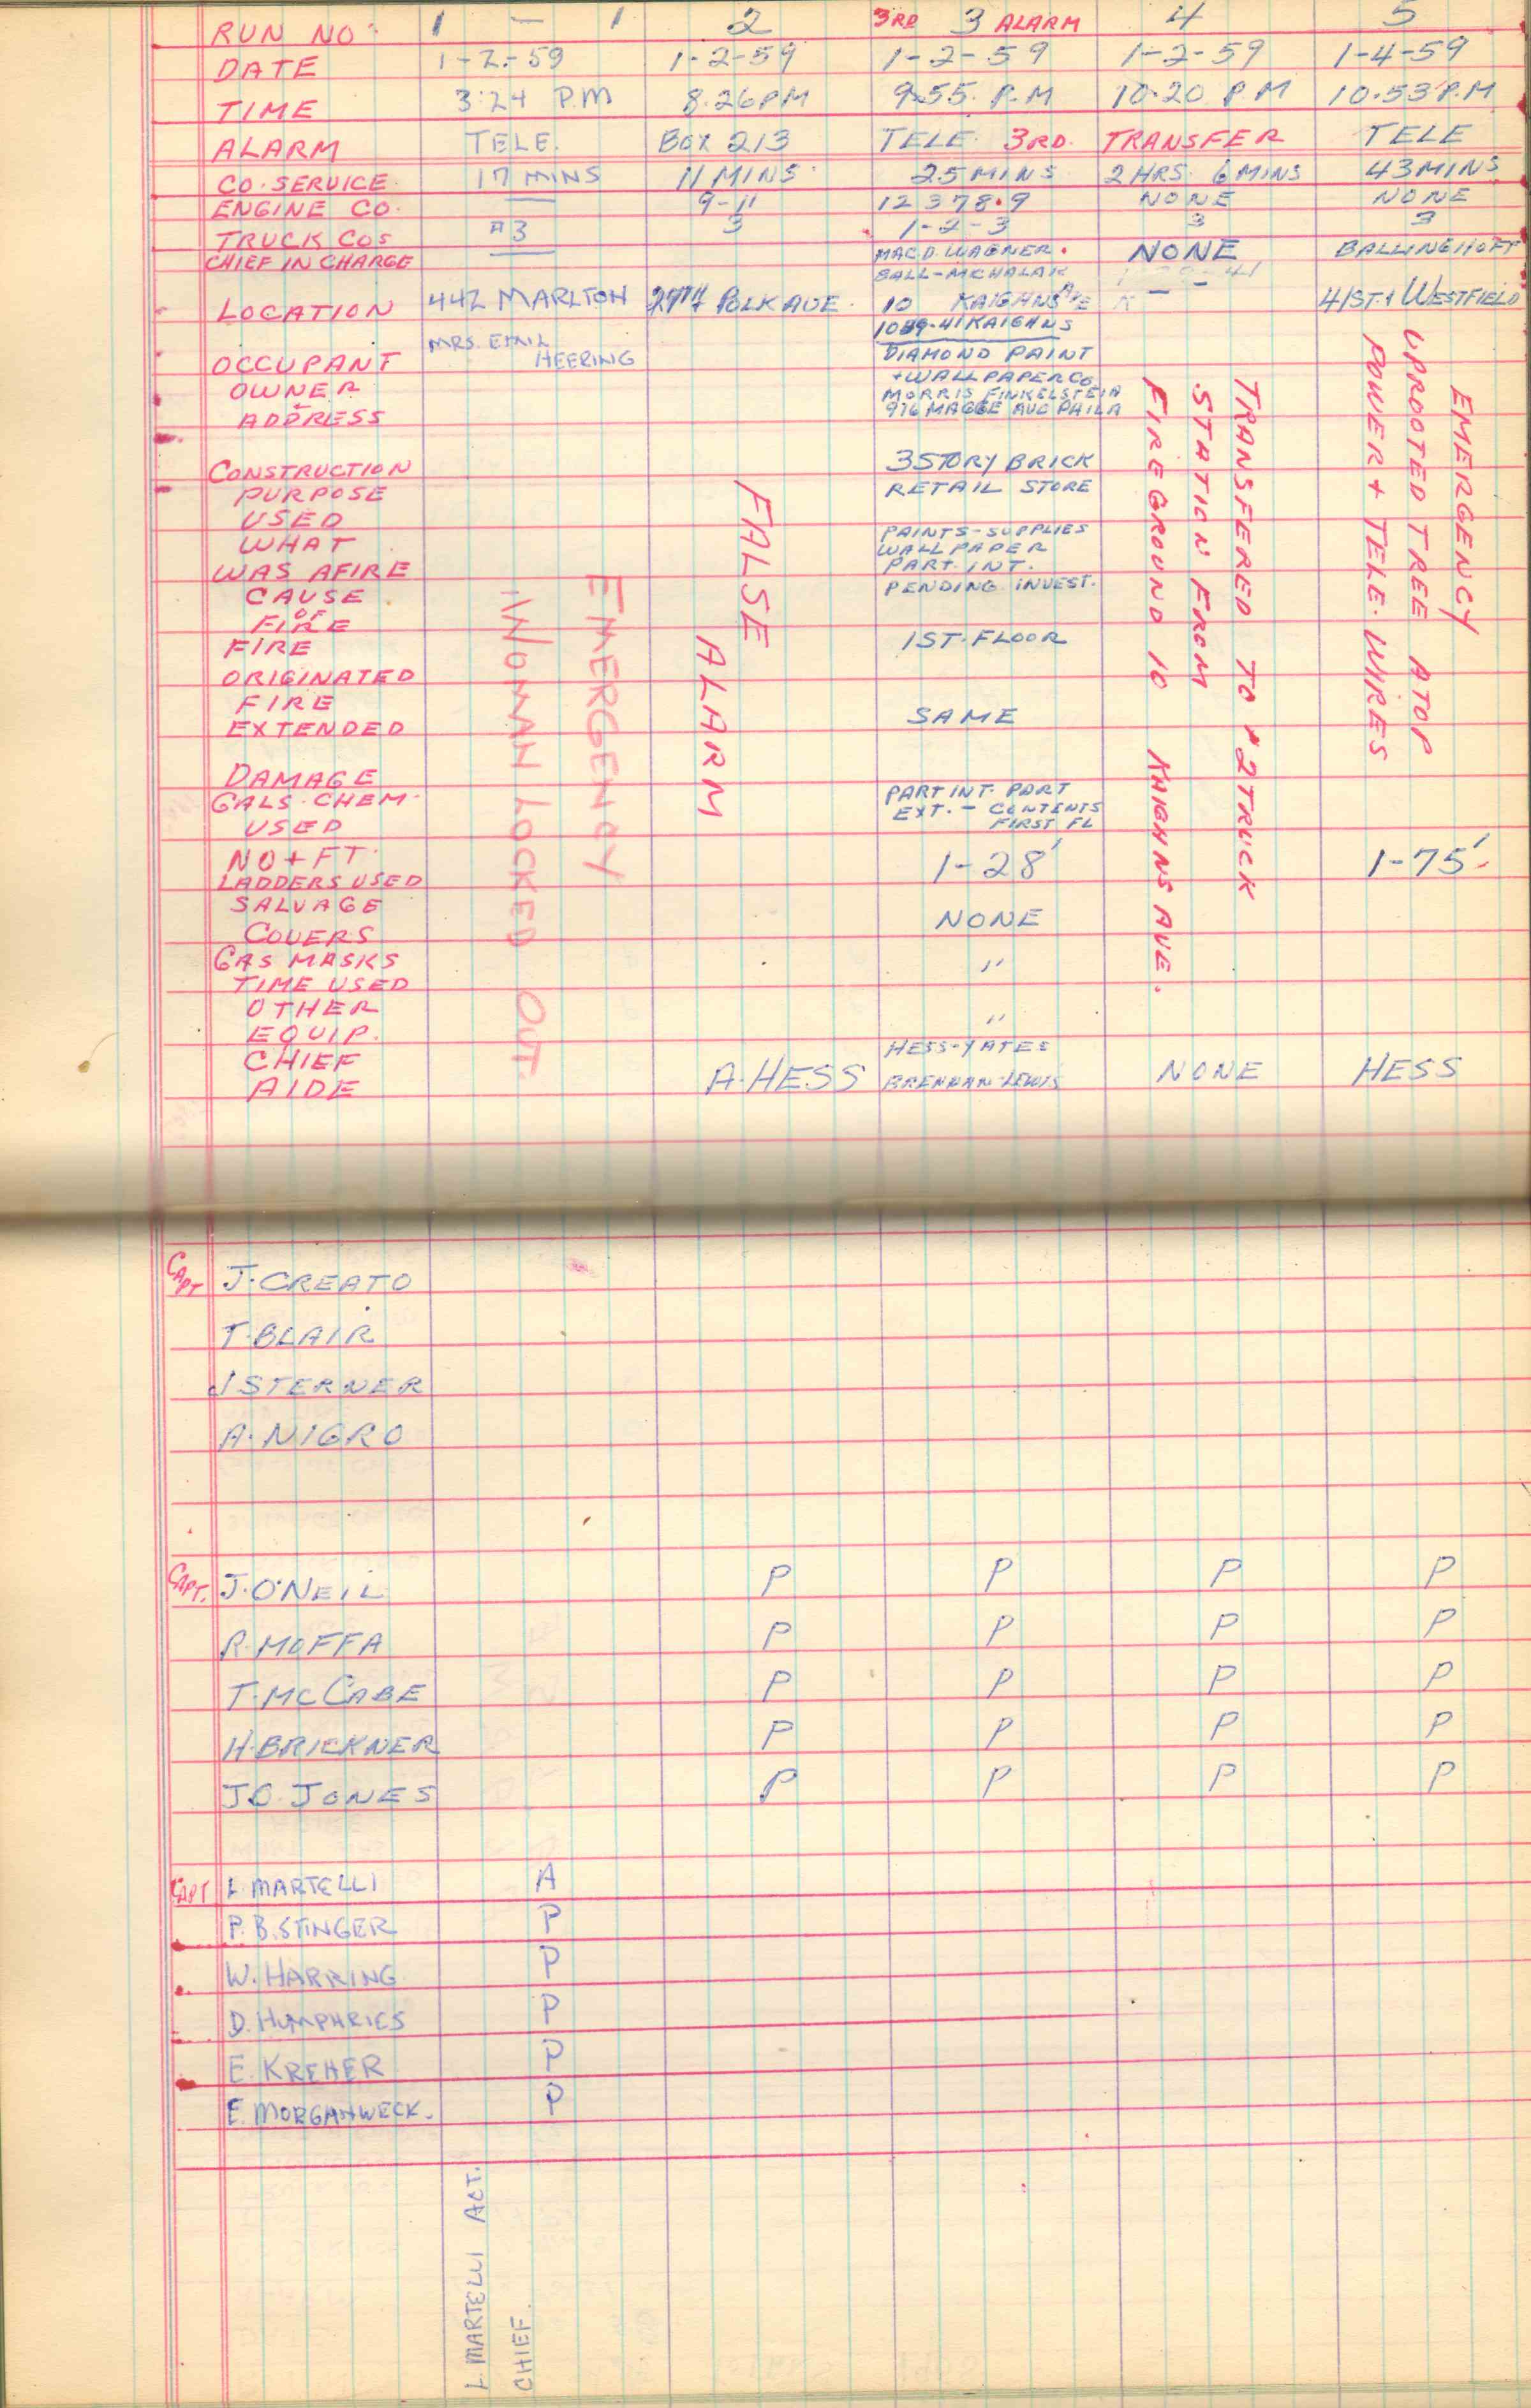 RUN NO: 1 — 1 2 3RD 3 ALARM 4 5
DATE 1-2-59 1-2-59 1-2-59 1-2-59 1-4-59
TIME 3:24 P.M 8.26PM 9.55 P.M 10.20 PM 10.53 P.M
ALARM TELE. BOX 213 TELE. 3RD. TRANSFER TELE
CO. SERVICE 17 MINS 11 MINS. 25 MINS 2 HRS. 6 MINS 43 MINS
ENGINE CO. — 9-11 12 378.9 NONE NONE
TRUCK COS #3 3 1-2-3 3 3
CHIEF IN CHARGE — MACD. WAGNER. NONE BALLINGHOFF
BALL-MCHALAK
LOCATION 442 MARLTON 27TH POLK AVE. 10 KAIGHNS AVE — - 41ST. & WESTFIELD
1039-41 KAIGHNS
OCCUPANT MRS. EMIL HEERING DIAMOND PAINT
OWNER + WALLPAPER CO
MORRIS FINKELSTEIN
ADDRESS 976 MAGEE AVE PHILA
CONSTRUCTION 3 STORY BRICK
PURPOSE RETAIL STORE
USED
WHAT PAINTS-SUPPLIES
WALLPAPER
WAS AFIRE PART. INT.
CAUSE PENDING INVEST.
OF
FIRE
FIRE 1ST. FLOOR
ORIGINATED
FIRE
EXTENDED SAME
DAMAGE
GALS. CHEM. PART INT. PART
EXT. - CONTENTS
USED FIRST FL
NO + FT. 1-28' 1-75'
LADDERS USED
SALVAGE
COVERS NONE
GAS MASKS "
TIME USED
OTHER
EQUIP. "
CHIEF HESS-YATES
AIDE A. HESS BRENNAN-LEWIS NONE HESS
EMERGENCY
WOMAN LOCKED OUT.
FALSE
ALARM
TRANSFERED TO #2 TRUCK
STATION FROM
FIREGROUND 10 KAIGHNS AVE.
EMERGENCY
UPROOTED TREE ATOP
POWER + TELE. WIRES
CAPT J. CREATO
T. BLAIR
J STERNER
A. NIGRO
CAPT. J. O'NEIL P P P P
R. MOFFA P P P P
T. MCCABE P P P P
H. BRICKNER P P P P
J.O. JONES P P P P
CAPT L. MARTELLI A
P. B. STINGER P
W. HARRING P
D. HUMPHRIES P
E. KREHER P
E. MORGANWECK. P
L. MARTELLI ACT.
CHIEF.